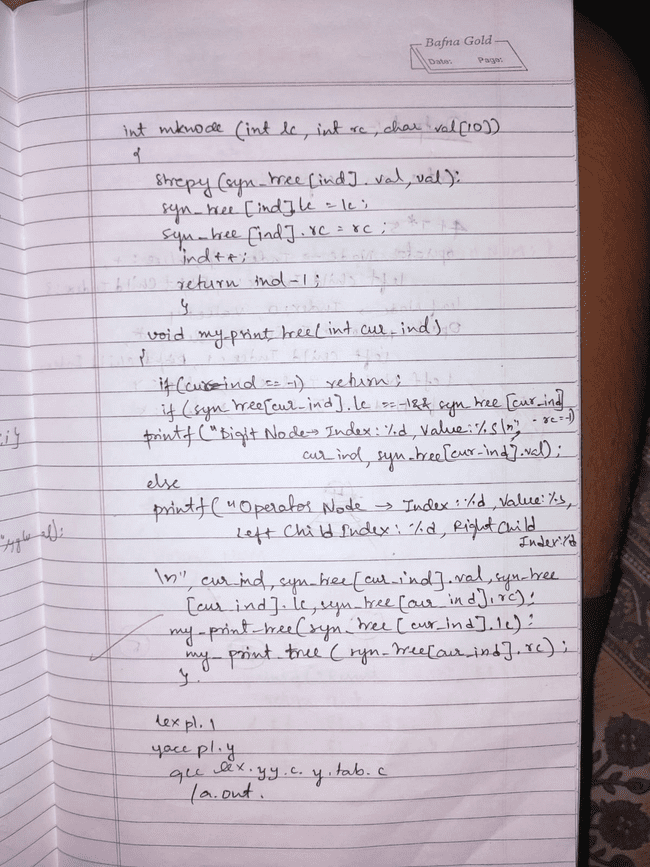 Bafna Gold
Date: Page:
int mknode (int lc, int rc, char val[10])
{
strcpy (syn_tree [ind]. val, val);
syn_tree [ind].lc = lc;
syn_tree [ind]. rc = rc ;
ind++;
return ind-1 ;
}
void my_print_tree( int cur_ind)
{
if (cur_ind == -1) return ;
if ( syn_tree[cur_ind]. lc == -1 && syn_tree [cur_ind]
. rc = -1)
printf ( "Digit Node → Index : %d, Value : %s \n",
cur_ind, syn_tree [cur_ind].val) ;
else
printf ( "Operator Node → Index : %d, Value : %s,
Left Child Index : %d, Right Child
Index:%d
\n", cur_ind, syn_tree [cur_ind]. val, syn_tree
[cur_ind]. lc, syn_tree [cur_ind]. rc) ;
my_print_tree (syn_tree [cur_ind]. lc) ;
my_print_tree ( syn_tree[cur_ind]. rc) ;
}.
lex p1. l
yacc p1. y
gcc lex. yy. c. y. tab. c
/a. out .